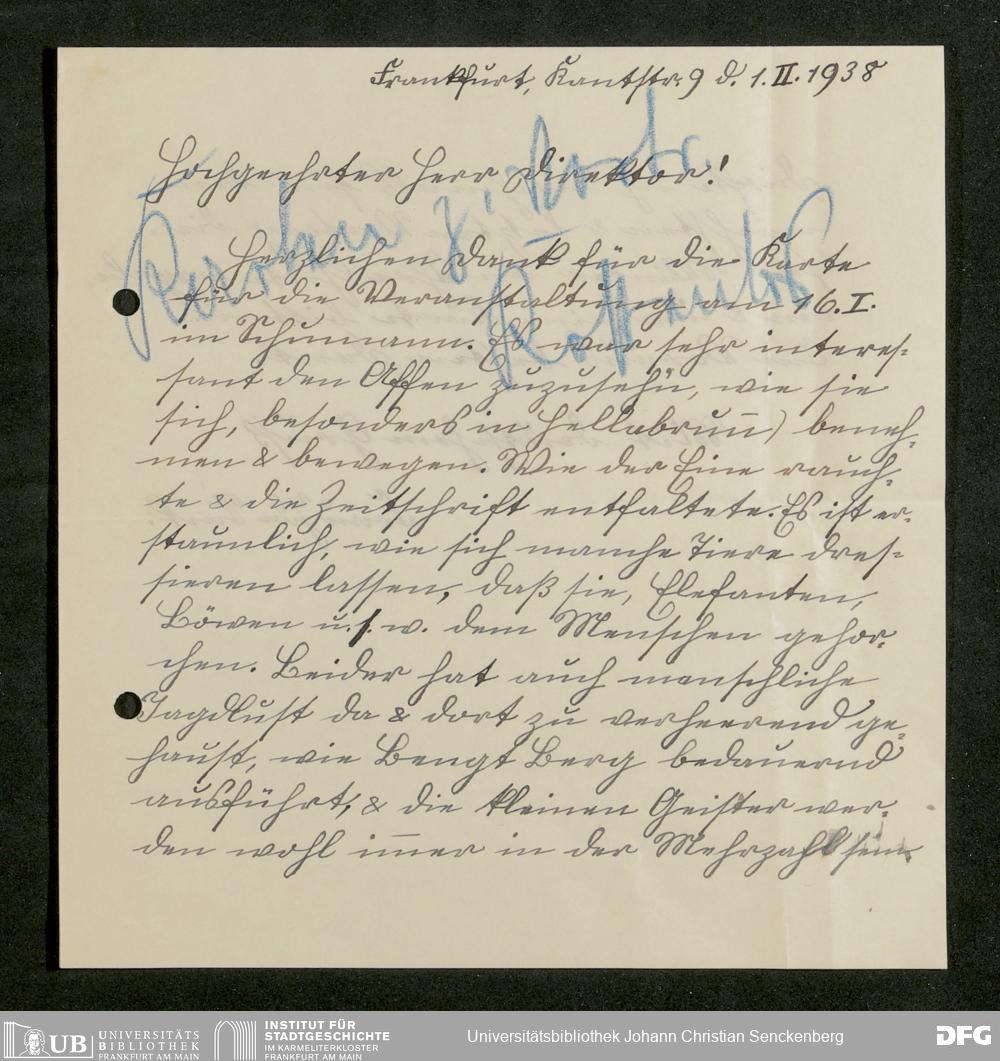 Frankfurt, Kantstr. 9 d. 1. II. 1938
Hochgeehrter Herr Direktor!
Herzlichen Dank für die Karte
für die Veranstaltung am 16. I.
im Schumann. Es war sehr interes-
sant den Affen zuzusehn, wie sie
sich, besonders in Hellabrunn) beneh-
men & bewegen. Wie der Eine rauch-
te & die Zeitschrift entfaltete. Es ist er-
staunlich, wie sich manche Tiere dres-
sieren lassen, daß sie, Elefanten,
Löwen u. s. w. dem Menschen gehor-
chen. Leider hat auch menschliche
Jagdlust da & dort zu verheerend ge-
haust, wie Bengt Berg bedauernd
ausführt, & die kleinen Geister wer-
den wohl immer in der Mehrzahl sein
UB UNIVERSITÄTS
BIBLIOTHEK
FRANKFURT AM MAIN
INSTITUT FÜR
STADTGESCHICHTE
IM KARMELITERKLOSTER
FRANKFURT AM MAIN
Universitätsbibliothek Johann Christian Senckenberg
DFG